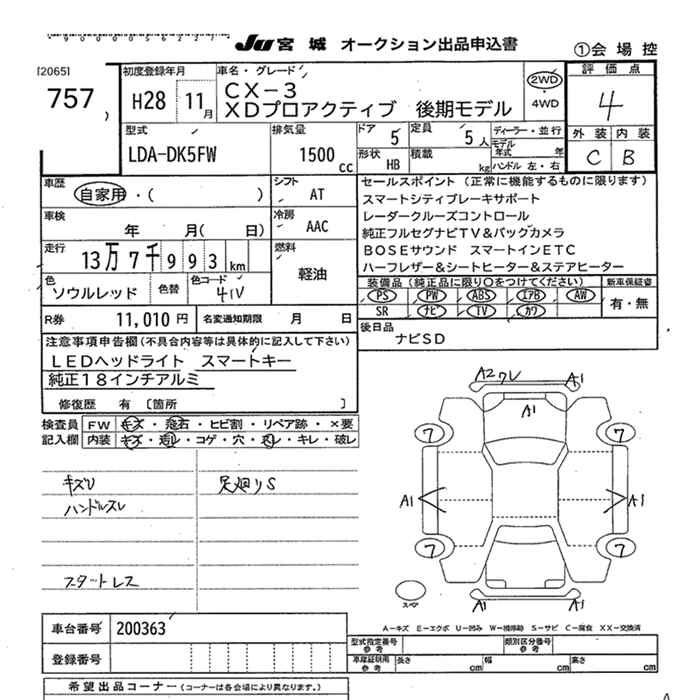 JU 宮城 オークション出品申込書
①会場控
[2065]
757
初度登録年月
H28 11月
車名・グレード
CX-3
XDプロアクティブ 後期モデル
2WD
・4WD
評価点
4
外装 内装
C B
型式
LDA-DK5FW
排気量
1500cc
ドア 5
定員 5人
ディーラー・並行
モデル年式 年
形状 HB
積載 kg
ハンドル 左・右
車歴
自家用・( )
シフト AT
車検
年 月( 日)
冷房 AAC
走行
13万7千993km
燃料
軽油
色
ソウルレッド
色替
色コード
41V
R券 11,010円
名変通知期限 月 日
セールスポイント(正常に機能するものに限ります)
スマートシティブレーキサポート
レーダークルーズコントロール
純正フルセグナビTV&バックカメラ
BOSEサウンド スマートインETC
ハーフレザー&シートヒーター&ステアヒーター
装備品(純正品に限り○をつけてください)
新車保証書
PS PW ABS エアB AW
SR ナビ TV カワ
有・無
後日品
ナビSD
注意事項申告欄(不具合内容等は具体的に記入して下さい)
LEDヘッドライト スマートキー
純正18インチアルミ
修復歴 有 [箇所 ]
検査員記入欄
FW キズ・飛石・ヒビ割・リペア跡・×要
内装 キズ・汚レ・コゲ・穴・スレ・キレ・破レ
キズU
ハンドルスレ
スタートレス
足廻りS
A2 ワレ
A1
A1
7
7
A1
A1
7
7
スペア
A1
A1
A-キズ E-エクボ U-凹み W-補修跡 S-サビ C-腐食 XX-交換済
車台番号 200363
登録番号
型式指定番号 参考
類別区分番号 参考
車庫証明用 参考
長さ cm
幅 cm
高さ cm
希望出品コーナー(コーナーは各会場により異なります。)